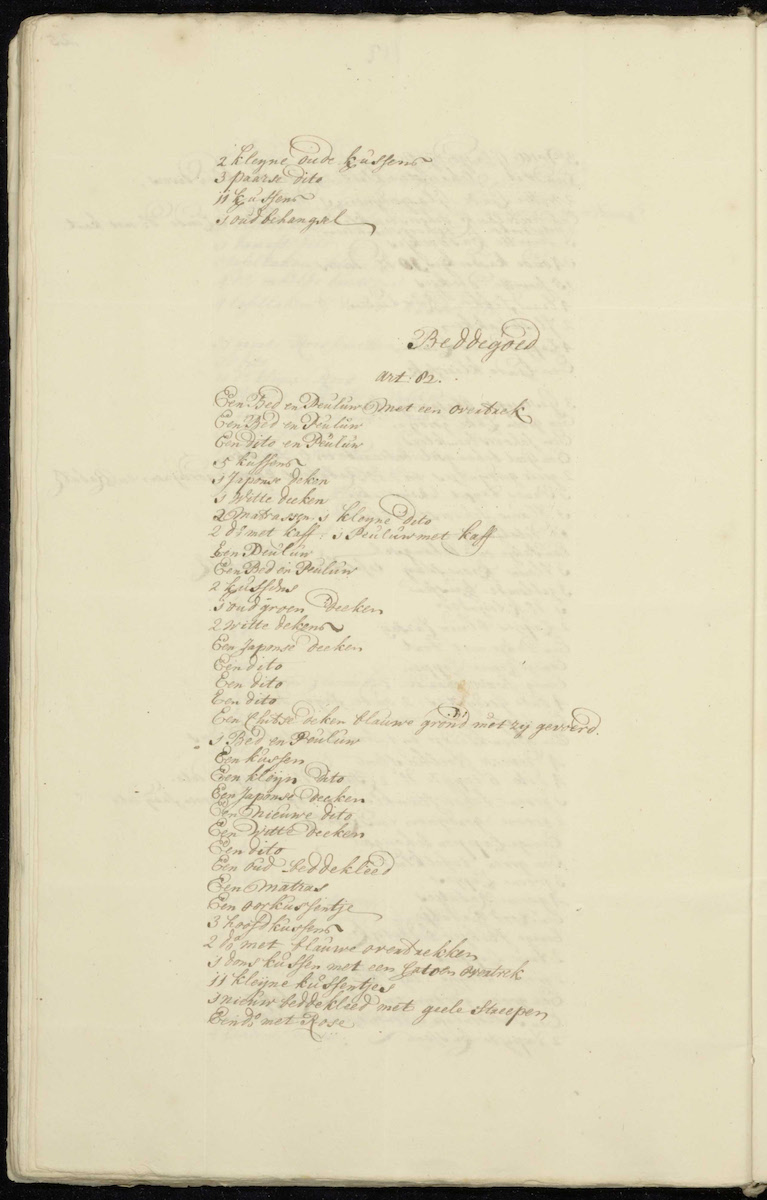 2 kleyne oude kussens
3 paarse dito
11 kussens
1 oud behangsel
Beddegoed
Art: 82.
Een Bed en Peuluw met een overtrek
Een Bed en Peuluw
Een dito en Peuluw
15 kussens
1 Japonse deken
1 Witte deeken
2 Matrassen, 1 kleyne dito
2 do met kaff, 1 Peuluw met kaff
Een Peuluw
Een Bed en Peuluw
2 kussens
1 oud groen deeken
2 witte dekens
Een Japonse deeken
Een dito
Een dito
Een dito
Een Chitse deken blauwe grond met zij gevoerd.
1 Bed en Peuluw
Een kussen
Een kleyn dito
Een Japonse deeken
Een nieuwe dito
Een Witte deeken
Een dito
Een Oud beddekleed
Een Matras
Een oorkussentje
3 hoofdkussens
2 do met blauwe overtrekken
1 dons kussen met een Catoen overtrek
11 kleyne kussentjes
1 nieuw beddekleed met geele Streepen
Een do met Rose